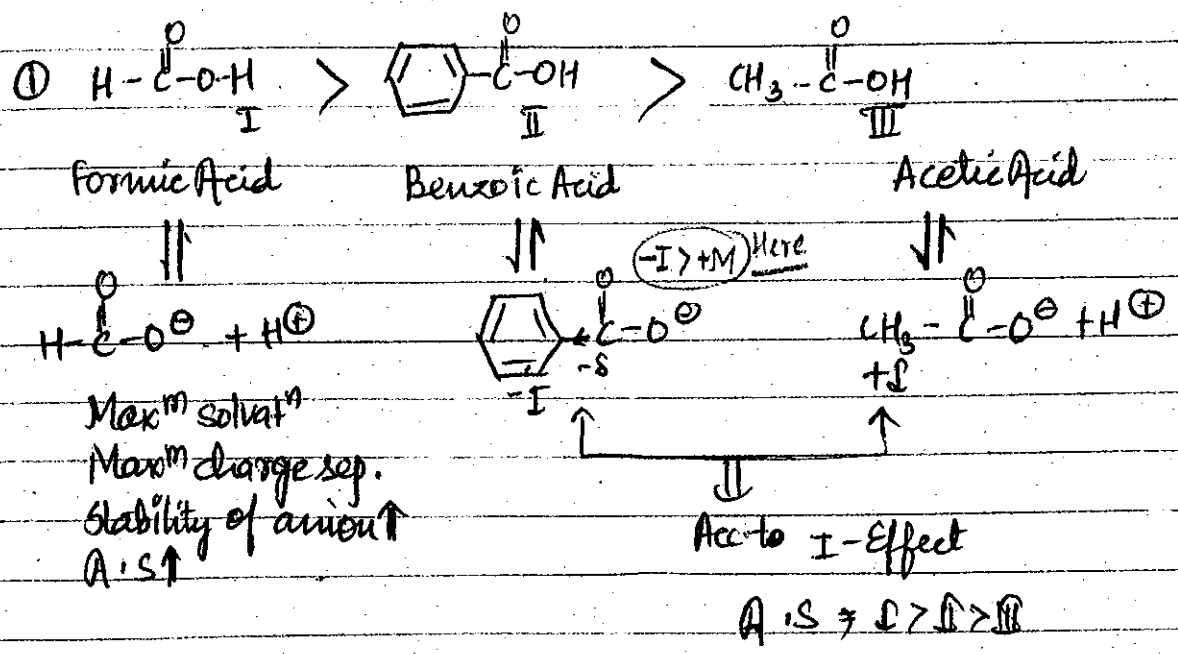 ① H-C(=O)-O-H > C-OH (=O) > CH₃-C(=O)-OH
I II III
Formic Acid Benzoic Acid Acetic Acid
⇌ ⇌ -I > +M Here ⇌
H-C(=O)-O⊖ + H⊕ C(=O)-O⊖ CH₃-C(=O)-O⊖ + H⊕
-I -δ +I
Maxᵐ solvatⁿ
Maxᵐ charge sep.
Stability of anion↑
A.S↑
Acc. to I-Effect
A.S ⇒ I > II > III